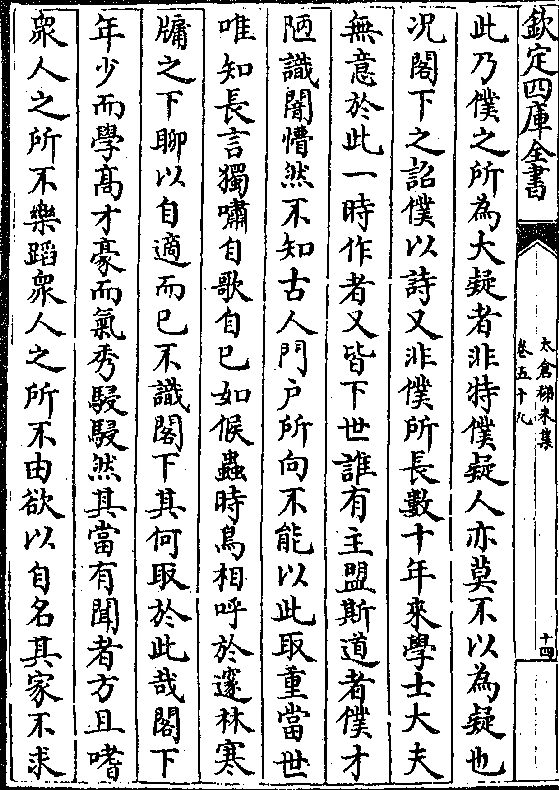 欽定四庫全書
太倉稊米集
卷五十九
十四
此乃僕之所為大疑者非特僕疑人亦莫不以為疑也
况閣下之詔僕以詩又非僕所長數十年來學士大夫
無意於此一時作者又皆下世誰有主盟斯道者僕才
陋識闇懵然不知古人門户所向不能以此取重當世
唯知長言獨嘯自歌自已如候蟲時鳥相呼於邃林寒
牗之下聊以自適而已不識閣下其何取於此哉閣下
年少而學髙才豪而氣秀駸駸然其當有聞者方且嗜
衆人之所不樂蹈衆人之所不由欲以自名其家不求